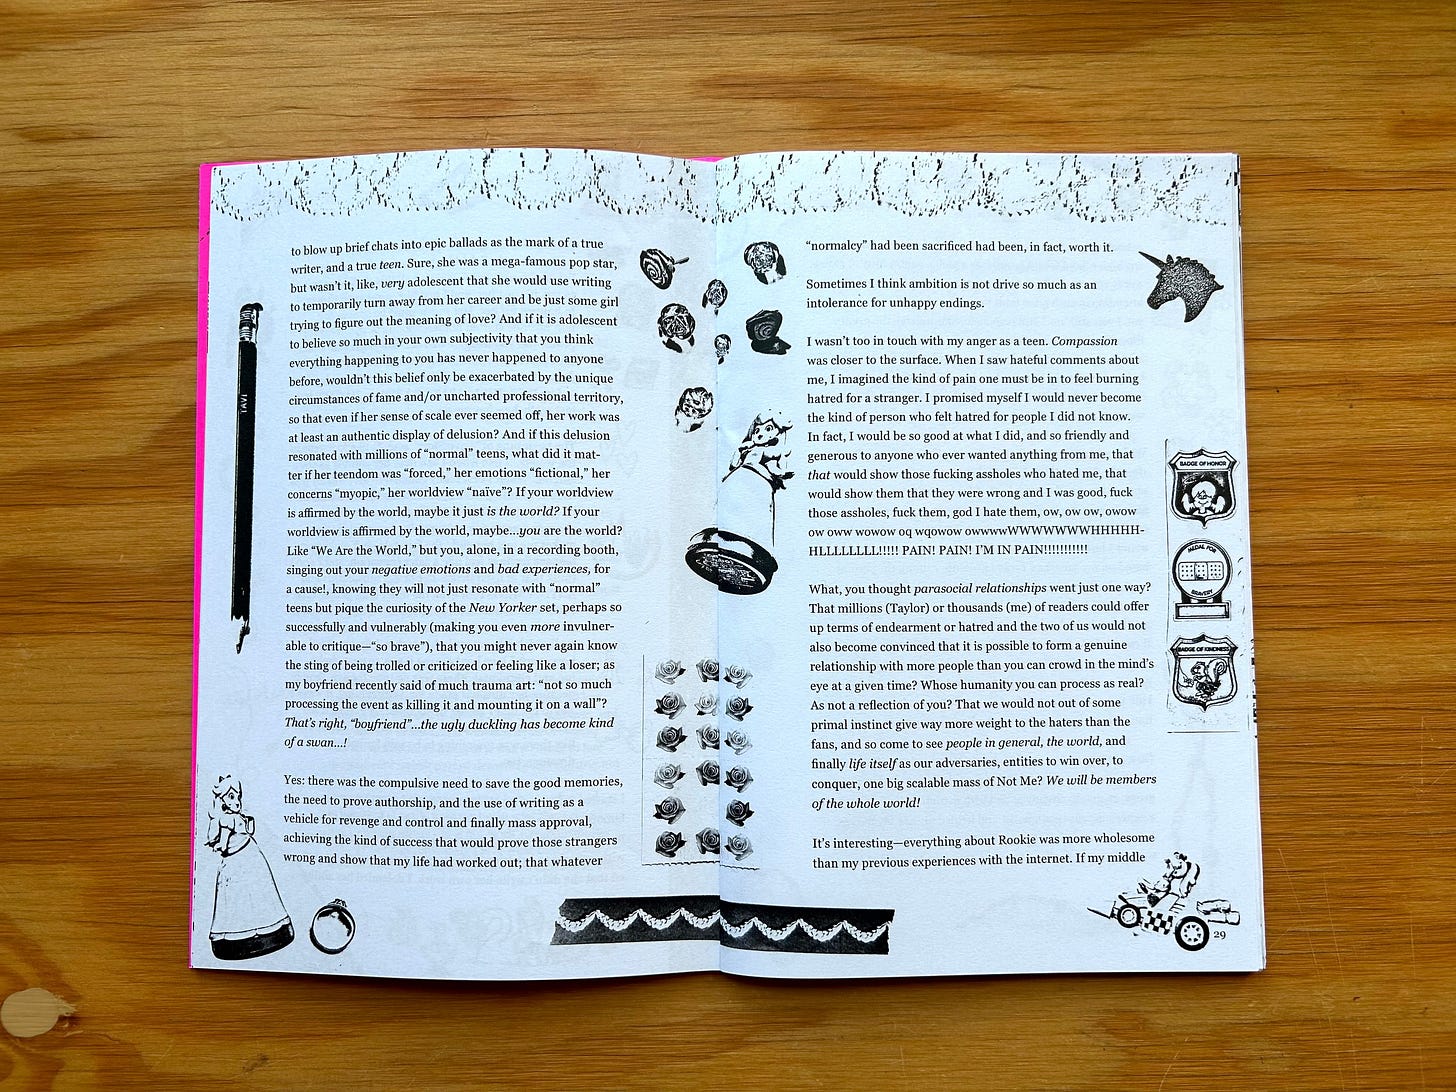 to blow up brief chats into epic ballads as the mark of a true
writer, and a true teen. Sure, she was a mega-famous pop star,
but wasn't it, like, very adolescent that she would use writing
to temporarily turn away from her career and be just some girl
trying to figure out the meaning of love? And if it is adolescent
to believe so much in your own subjectivity that you think
everything happening to you has never happened to anyone
before, wouldn't this belief only be exacerbated by the unique
circumstances of fame and/or uncharted professional territory,
so that even if her sense of scale ever seemed off, her work was
at least an authentic display of delusion? And if this delusion
resonated with millions of “normal” teens, what did it mat-
ter if her teendom was “forced,” her emotions “fictional,” her
concerns “myopic,” her worldview “naïve”? If your worldview
is affirmed by the world, maybe it just is the world? If your
worldview is affirmed by the world, maybe...you are the world?
Like “We Are the World,” but you, alone, in a recording booth,
singing out your negative emotions and bad experiences, for
a cause!, knowing they will not just resonate with “normal”
teens but pique the curiosity of the New Yorker set, perhaps so
successfully and vulnerably (making you even more invulner-
able to critique—“so brave”), that you might never again know
the sting of being trolled or criticized or feeling like a loser; as
my boyfriend recently said of much trauma art: “not so much
processing the event as killing it and mounting it on a wall”?
That's right, “boyfriend”...the ugly duckling has become kind
of a swan...!
Yes: there was the compulsive need to save the good memories,
the need to prove authorship, and the use of writing as a
vehicle for revenge and control and finally mass approval,
achieving the kind of success that would prove those strangers
wrong and show that my life had worked out; that whatever
TAVI
“normalcy” had been sacrificed had been, in fact, worth it.
Sometimes I think ambition is not drive so much as an
intolerance for unhappy endings.
I wasn't too in touch with my anger as a teen. Compassion
was closer to the surface. When I saw hateful comments about
me, I imagined the kind of pain one must be in to feel burning
hatred for a stranger. I promised myself I would never become
the kind of person who felt hatred for people I did not know.
In fact, I would be so good at what I did, and so friendly and
generous to anyone who ever wanted anything from me, that
that would show those fucking assholes who hated me, that
would show them that they were wrong and I was good, fuck
those assholes, fuck them, god I hate them, ow, ow ow, owow
ow oww wowow oq wqowow owwwwWWWWWWWHHHHH-
HLLLLLLLL!!!!! PAIN! PAIN! I'M IN PAIN!!!!!!!!!!!
What, you thought parasocial relationships went just one way?
That millions (Taylor) or thousands (me) of readers could offer
up terms of endearment or hatred and the two of us would not
also become convinced that it is possible to form a genuine
relationship with more people than you can crowd in the mind's
eye at a given time? Whose humanity you can process as real?
As not a reflection of you? That we would not out of some
primal instinct give way more weight to the haters than the
fans, and so come to see people in general, the world, and
finally life itself as our adversaries, entities to win over, to
conquer, one big scalable mass of Not Me? We will be members
of the whole world!
It's interesting—everything about Rookie was more wholesome
than my previous experiences with the internet. If my middle
BADGE OF HONOR
MEDAL FOR
BRAVERY
BADGE OF KINDNESS
29